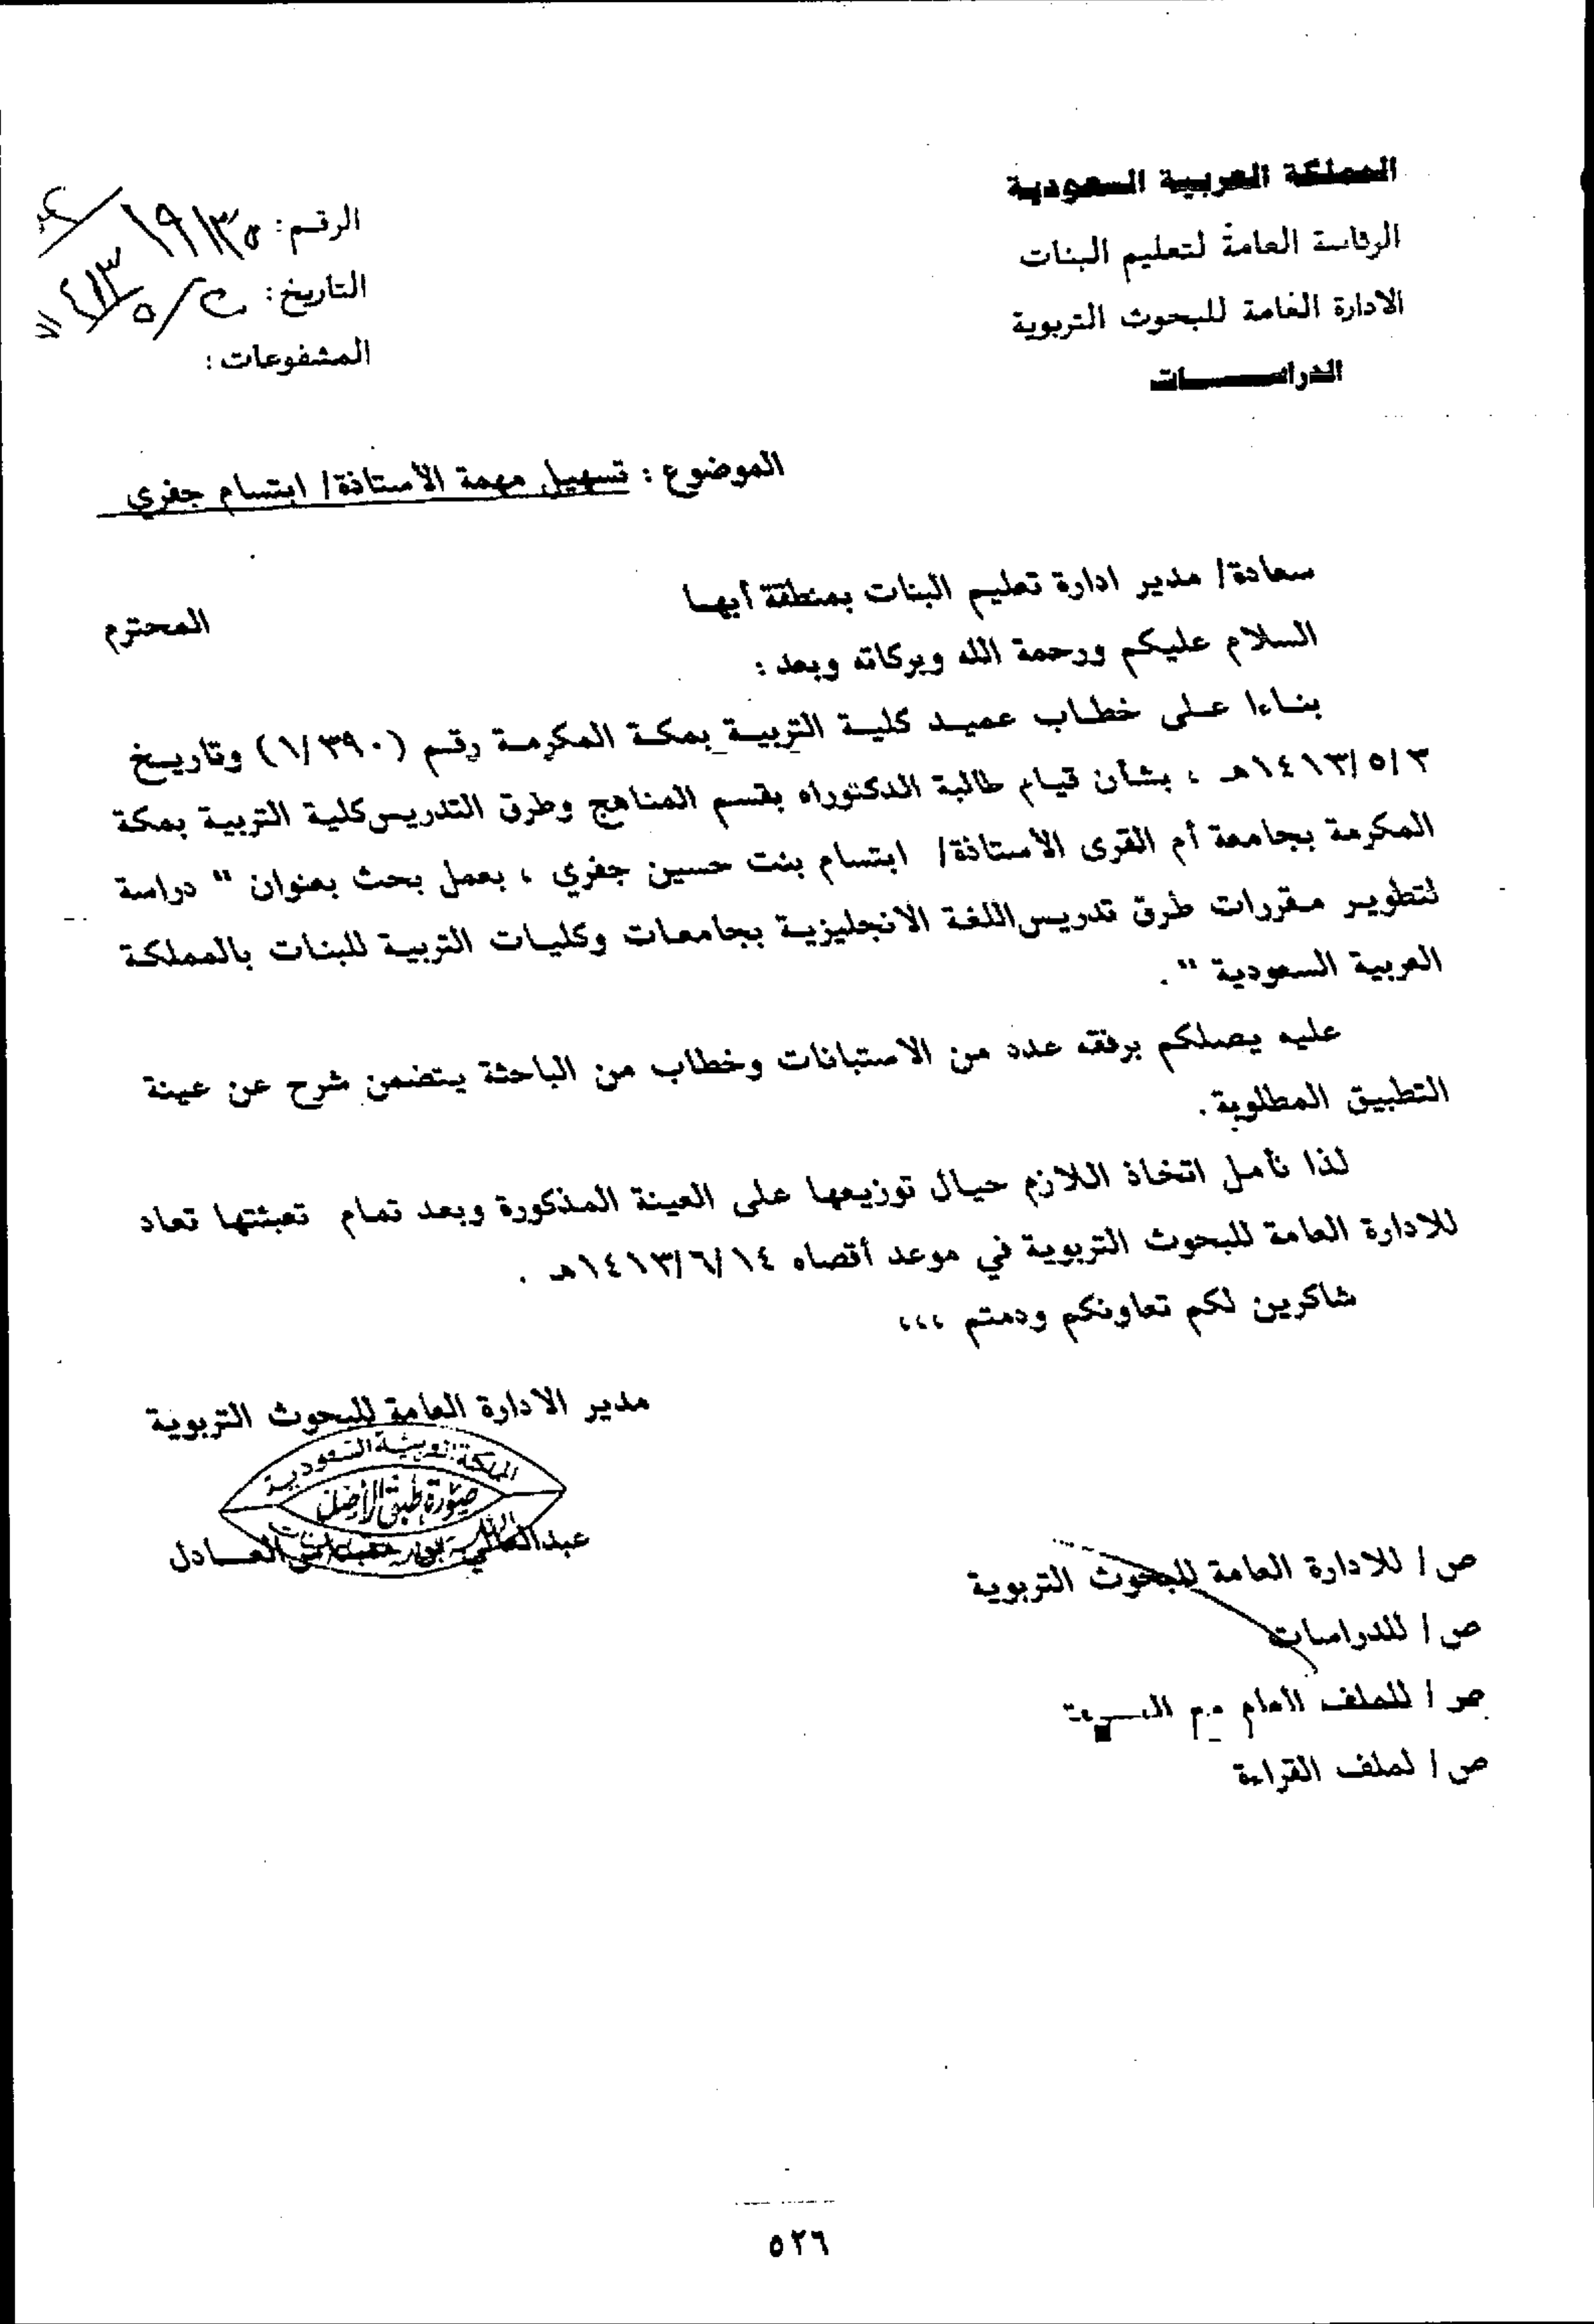 المملكة العربية السعودية
الرئاسة العامة لتعليم البنات
الادارة العامة للبحوث التربوية
الدراســـات
الرقم:
التاريخ:
المشفوعات :
الموضوع : تسهيل مهمة الأستاذة/ ابتسام جفري
سعادة/ مدير ادارة تعليم البنات بمنطقة أبهـا
المحترم
السلام عليكم ورحمة الله وبركاته وبعد :
بناءا على خطاب عميد كلية التربية بمكة المكرمة رقم (١/٣٩٠) وتاريخ
١٤١٣/٥/٣هـ ، بشأن قيام طالبة الدكتوراه بقسم المناهج وطرق التدريس كلية التربية بمكة
المكرمة بجامعة أم القرى الأستاذة/ ابتسام بنت حسين جفري ، بعمل بحث بعنوان " دراسة
لتطوير مقررات طرق تدريس اللغة الانجليزية بجامعات وكليات التربية للبنات بالمملكة
العربية السعودية " .
عليه يصلكم برفقه عدد من الاستبانات وخطاب من الباحثة يتضمن شرح عن عينة
التطبيق المطلوبة .
لذا نأمل اتخاذ اللازم حيال توزيعها على العينة المذكورة وبعد تمام تعبئتها تعاد
للادارة العامة للبحوث التربوية في موعد أقصاه ١٤١٣/٦/١٤هـ .
شاكرين لكم تعاونكم ودمتم ،،،
مدير الادارة العامة للبحوث التربوية
المملكة العربية السعودية
صورة طبق الأصل
العـادل
ص / للادارة العامة للبحوث التربوية
ص / للدراسات
ص / للملف العام
ص / لملف القراءة
٥٢٦